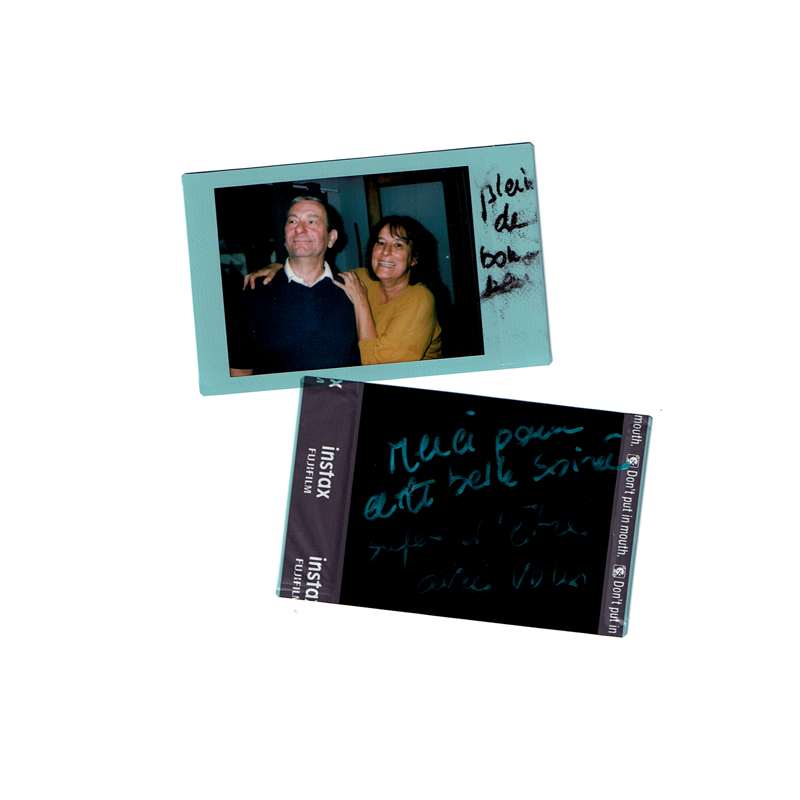 plein
de
bon-
heur
instax
FUJIFILM
instax
FUJIFILM
Merci pour
cette belle soirée
super d'être
avec vous
mouth.
Don't put in mouth.
Don't put in